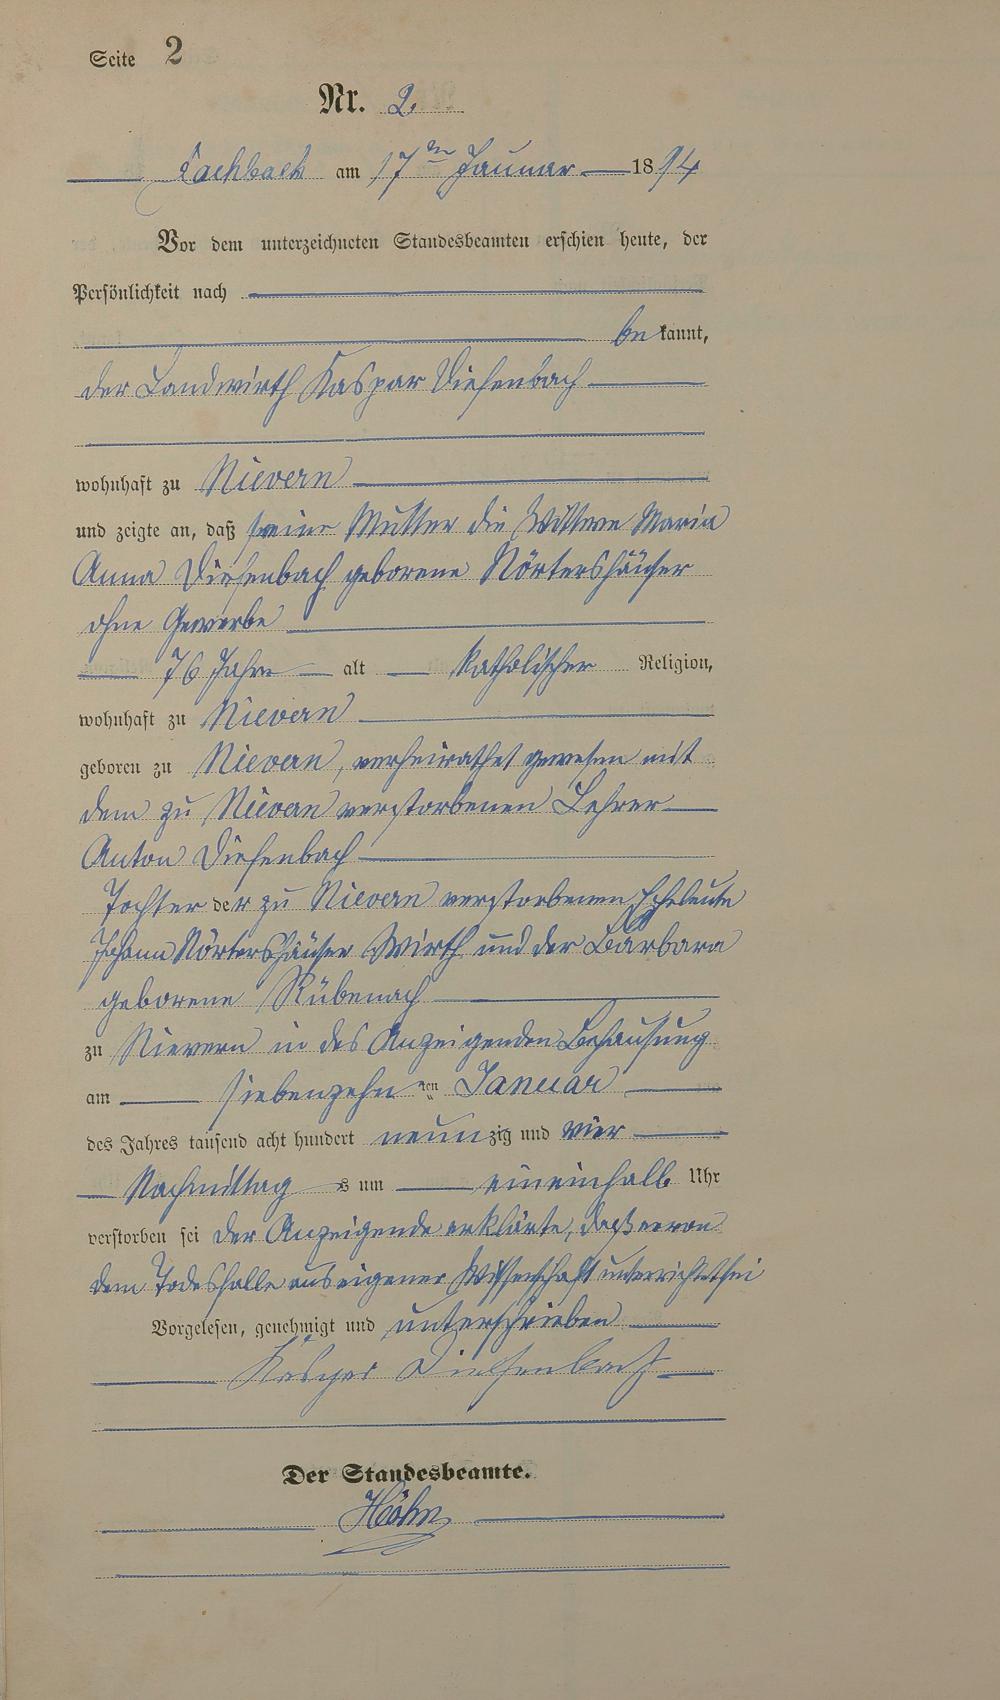 Seite 2
Nr. 2.
Fachbach am 17ten Januar 1894
Vor dem unterzeichneten Standesbeamten erschien heute, der
Persönlichkeit nach
be kannt,
der Landwirth Kaspar Diefenbach
wohnhaft zu Nievern
und zeigte an, daß seine Mutter die Wittwe Maria
Anna Diefenbach geborene Nörtershäuser
ohne Gewerbe
76 Jahre alt katholischer Religion,
wohnhaft zu Nievern
geboren zu Nievern, verheirathet gewesen mit
dem zu Nievern verstorbenen Lehrer
Anton Diefenbach
Tochter der zu Nievern verstorbenen Eheleute
Johann Nörtershäuser Wirth und der Barbara
geborene Rübenach
zu Nievern in des Anzeigenden Behausung
am siebenzehnten Januar
des Jahres tausend acht hundert neunzig und vier
Nachmittag s um eineinhalb Uhr
verstorben sei der Anzeigende erklärte, daß er von
dem Todesfalle aus eigener Wissenschaft unterrichtet sei
Vorgelesen, genehmigt und unterschrieben
Kaspar Diefenbach
Der Standesbeamte.
Höhn